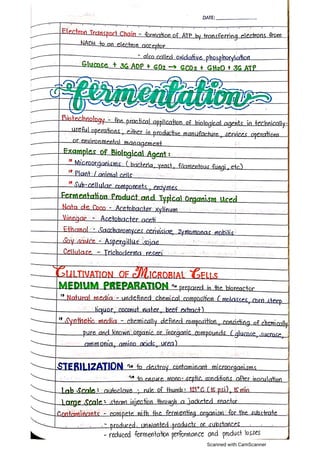 DATE:
Electron Transport Chain - formation of ATP by transferring electrons from
NADH to an electron acceptor
- also called oxidative phosphorylation
Glucose + 36 ADP + 6O2 → 6CO2 + 6H2O + 36 ATP
fermentation
Biotechnology - the practical application of biological agents in technically
useful operations, either in productive manufacture, services operations
or environmental management
Examples of Biological Agent:
Microorganisms (bacteria, yeast, filamentous fungi, etc)
Plant / animal cells
Sub-cellular components, enzymes
Fermentation Product and Typical Organism Used
Nata de Coco - Acetobacter xylinum
Vinegar - Acetobacter aceti
Ethanol - Saccharomyces cerivisiae, Zymomonas mobilis
Soy sauce - Aspergillus sojae
Cellulase - Trichoderma reesei
CULTIVATION OF MICROBIAL CELLS
MEDIUM PREPARATION prepared in the bioreactor
Natural media - undefined chemical composition (molasses, corn steep
liquor, coconut water, beef extract)
Synthetic media - chemically defined composition, consisting of chemically
pure and known organic or inorganic compounds (glucose, sucrose,
ammonia, amino acids, urea)
STERILIZATION to destroy contaminant microorganisms
to ensure mono-septic conditions after inoculation
Lab Scale: autoclave; rule of thumb: 121°C (15 psi), 15 min
Large Scale: steam injection through a jacketed reactor
Contaminants - compete with the fermenting organism for the substrate
- produced unwanted products or substances
- reduced fermentation performance and product losses
Scanned with CamScanner